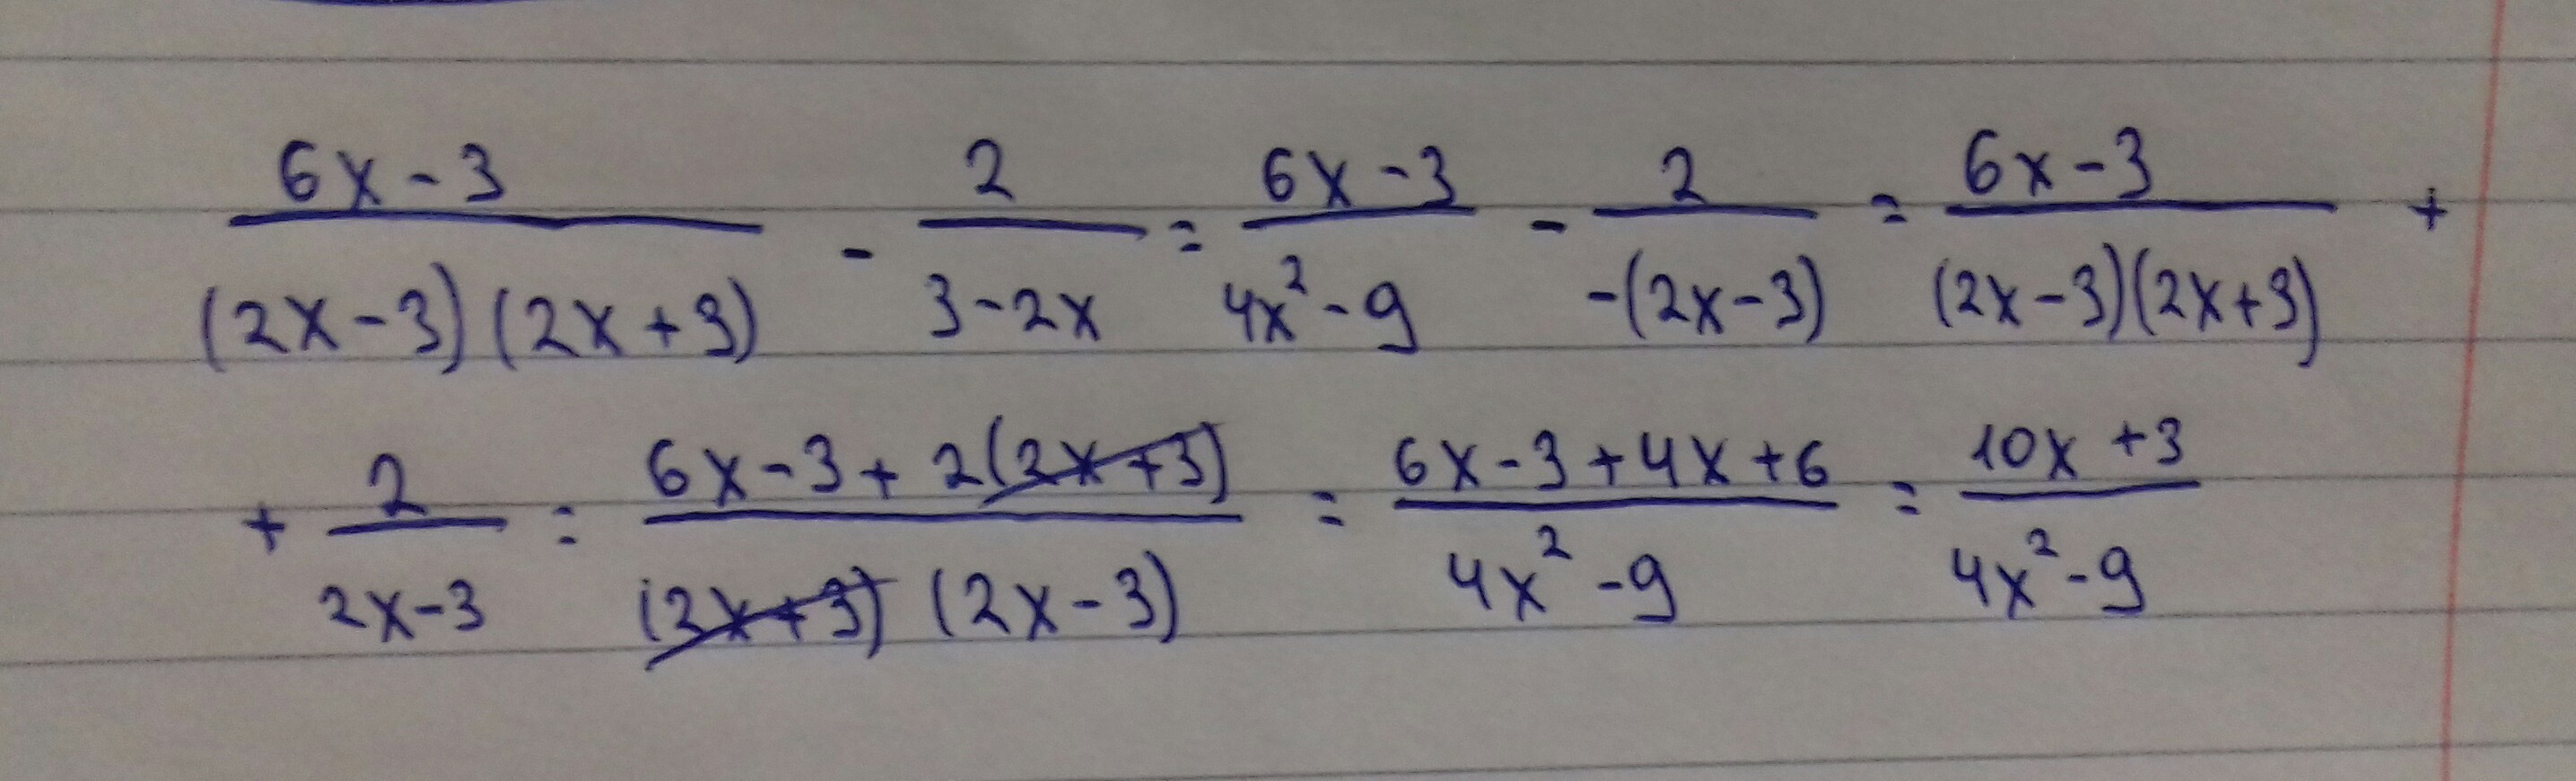 (6x-3)/((2x-3)(2x+3)) - 2/(3-2x) = (6x-3)/(4x²-9) - 2/(-(2x-3)) = (6x-3)/((2x-3)(2x+3)) +
+ 2/(2x-3) = (6x-3+2(2x+3))/((2x+3)(2x-3)) = (6x-3+4x+6)/(4x²-9) = (10x+3)/(4x²-9)